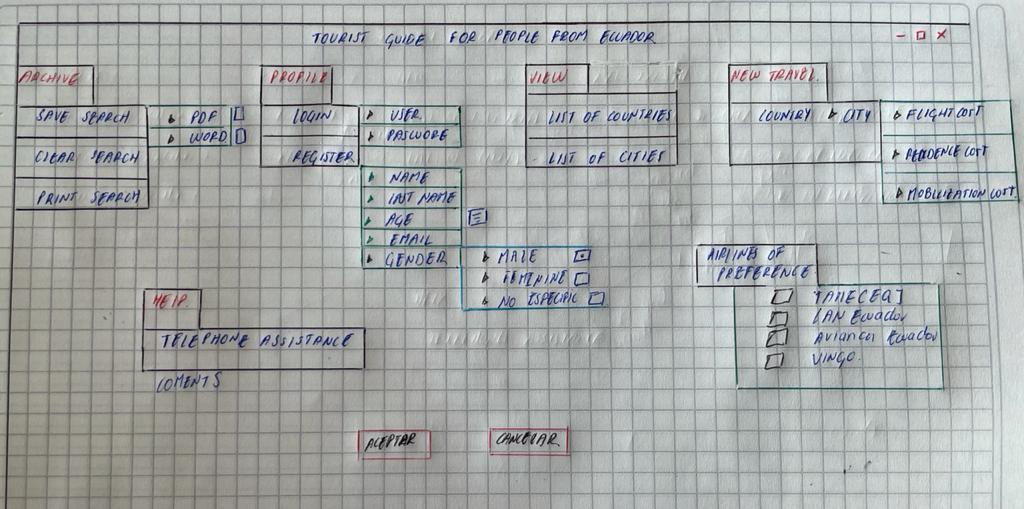 TOURIST GUIDE FOR PEOPLE FROM ECUADOR
ARCHIVE
SAVE SEARCH
PDF
WORD
CLEAR SEARCH
PRINT SEARCH
PROFILE
LOGIN
USER
PASWORE
REGISTER
NAME
LAST NAME
AGE
EMAIL
GENDER
MALE
FEMININE
NO ESPECIFIC
VIEW
LIST OF COUNTRIES
LIST OF CITIES
NEW TRAVEL.
COUNTRY CITY
FLIGHT COST
COST
MOBILIZATION COST
AIRLINES OF
PREFERENCE
LAN Ecuador
Avianca Ecuador
VINGO.
HELP
TELEPHONE ASSISTANCE
COMENTS
ACEPTAR
CANCELAR